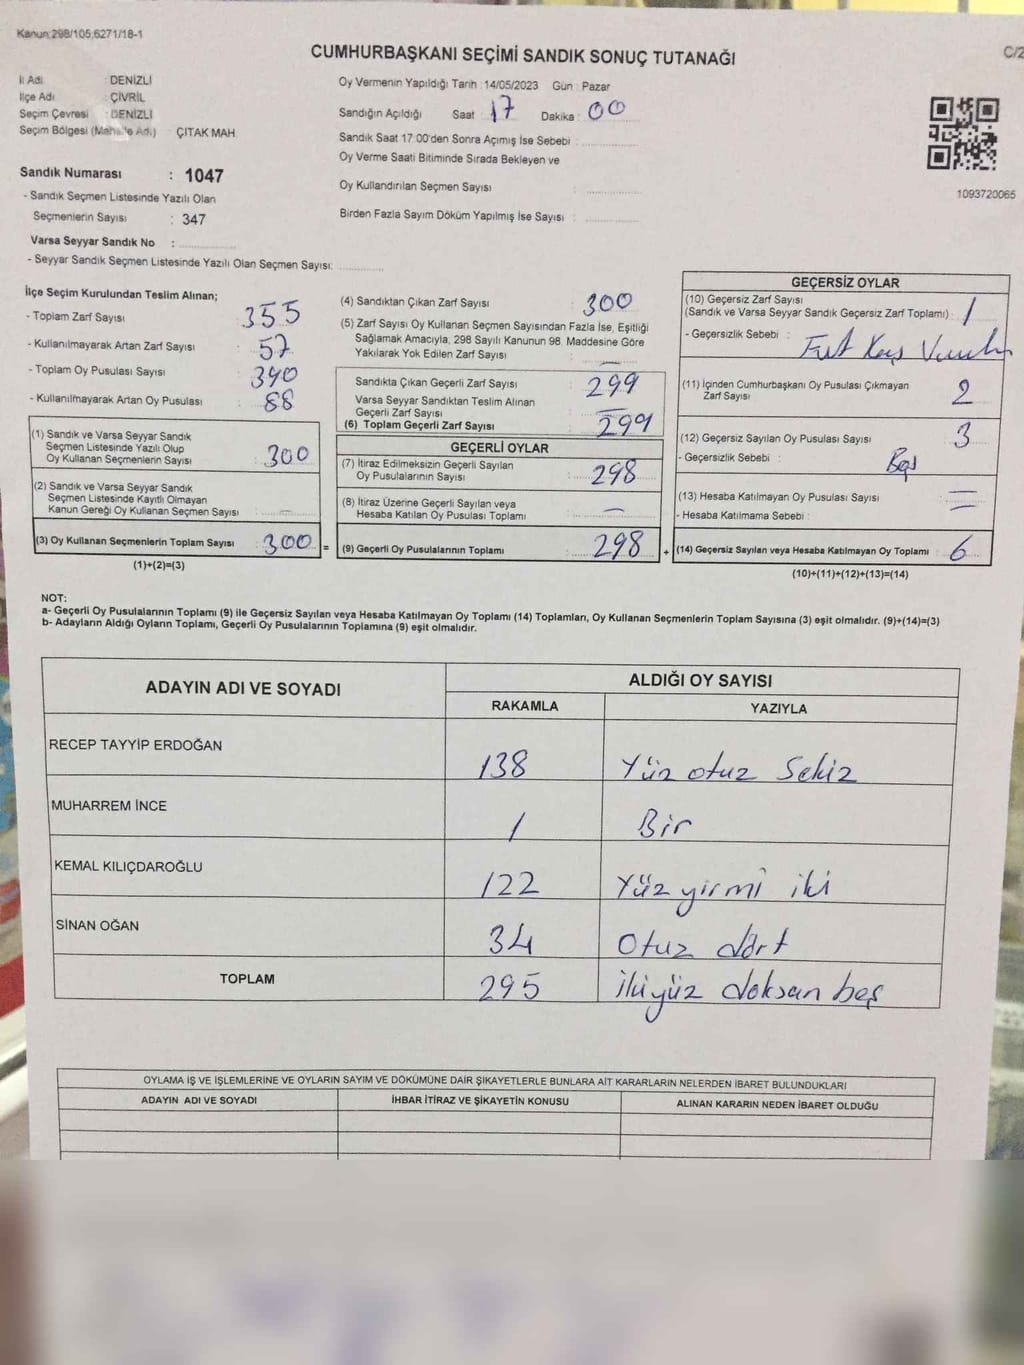 Kanun:298/105,6271/18-1
CUMHURBAŞKANI SEÇİMİ SANDIK SONUÇ TUTANAĞI
C/2
İl Adı : DENİZLİ
İlçe Adı : ÇİVRİL
Seçim Çevresi : DENİZLİ
Seçim Bölgesi (Mahalle Adı) : ÇITAK MAH.
Oy Vermenin Yapıldığı Tarih : 14/05/2023 Gün : Pazar
Sandığın Açıldığı Saat 17 Dakika : 00
Sandık Saat 17:00'den Sonra Açımış İse Sebebi :
Oy Verme Saati Bitiminde Sırada Bekleyen ve
Oy Kullandırılan Seçmen Sayısı :
Birden Fazla Sayım Döküm Yapılmış İse Sayısı :
1093720065
Sandık Numarası : 1047
- Sandık Seçmen Listesinde Yazılı Olan
Seçmenlerin Sayısı : 347
Varsa Seyyar Sandık No :
- Seyyar Sandık Seçmen Listesinde Yazılı Olan Seçmen Sayısı:
İlçe Seçim Kurulundan Teslim Alınan;
- Toplam Zarf Sayısı 355
- Kullanılmayarak Artan Zarf Sayısı 57
- Toplam Oy Pusulası Sayısı 390
- Kullanılmayarak Artan Oy Pusulası 88
(1) Sandık ve Varsa Seyyar Sandık
Seçmen Listesinde Yazılı Olup
Oy Kullanan Seçmenlerin Sayısı : 300
(2) Sandık ve Varsa Seyyar Sandık
Seçmen Listesinde Kayıtlı Olmayan
Kanun Gereği Oy Kullanan Seçmen Sayısı : —
(3) Oy Kullanan Seçmenlerin Toplam Sayısı : 300 =
(1)+(2)=(3)
(4) Sandıktan Çıkan Zarf Sayısı : 300
(5) Zarf Sayısı Oy Kullanan Seçmen Sayısından Fazla İse, Eşitliği
Sağlamak Amacıyla, 298 Sayılı Kanunun 98. Maddesine Göre
Yakılarak Yok Edilen Zarf Sayısı : —
Sandıkta Çıkan Geçerli Zarf Sayısı : 299
Varsa Seyyar Sandıktan Teslim Alınan
Geçerli Zarf Sayısı : —
(6) Toplam Geçerli Zarf Sayısı : 299
GEÇERLİ OYLAR
(7) İtiraz Edilmeksizin Geçerli Sayılan
Oy Pusulalarının Sayısı : 298
(8) İtiraz Üzerine Geçerli Sayılan veya
Hesaba Katılan Oy Pusulası Toplamı : —
(9) Geçerli Oy Pusulalarının Toplamı : 298 +
GEÇERSİZ OYLAR
(10) Geçersiz Zarf Sayısı
(Sandık ve Varsa Seyyar Sandık Geçersiz Zarf Toplamı) : 1
- Geçersizlik Sebebi :
(11) İçinden Cumhurbaşkanı Oy Pusulası Çıkmayan
Zarf Sayısı : 2
(12) Geçersiz Sayılan Oy Pusulası Sayısı : 3
- Geçersizlik Sebebi : Boş
(13) Hesaba Katılmayan Oy Pusulası Sayısı : —
- Hesaba Katılmama Sebebi : —
(14) Geçersiz Sayılan veya Hesaba Katılmayan Oy Toplamı : 6
(10)+(11)+(12)+(13)=(14)
NOT:
a- Geçerli Oy Pusulalarının Toplamı (9) ile Geçersiz Sayılan veya Hesaba Katılmayan Oy Toplamı (14) Toplamları, Oy Kullanan Seçmenlerin Toplam Sayısına (3) eşit olmalıdır. (9)+(14)=(3)
b- Adayların Aldığı Oyların Toplamı, Geçerli Oy Pusulalarının Toplamına (9) eşit olmalıdır.
ADAYIN ADI VE SOYADI ALDIĞI OY SAYISI
RAKAMLA YAZIYLA
RECEP TAYYİP ERDOĞAN 138 Yüz otuz Sekiz
MUHARREM İNCE 1 Bir
KEMAL KILIÇDAROĞLU 122 Yüz yirmi iki
SİNAN OĞAN 34 Otuz dört
TOPLAM 295 ikiyüz doksan beş
OYLAMA İŞ VE İŞLEMLERİNE VE OYLARIN SAYIM VE DÖKÜMÜNE DAİR ŞİKAYETLERLE BUNLARA AİT KARARLARIN NELERDEN İBARET BULUNDUKLARI
ADAYIN ADI VE SOYADI İHBAR İTİRAZ VE ŞİKAYETİN KONUSU ALINAN KARARIN NEDEN İBARET OLDUĞU